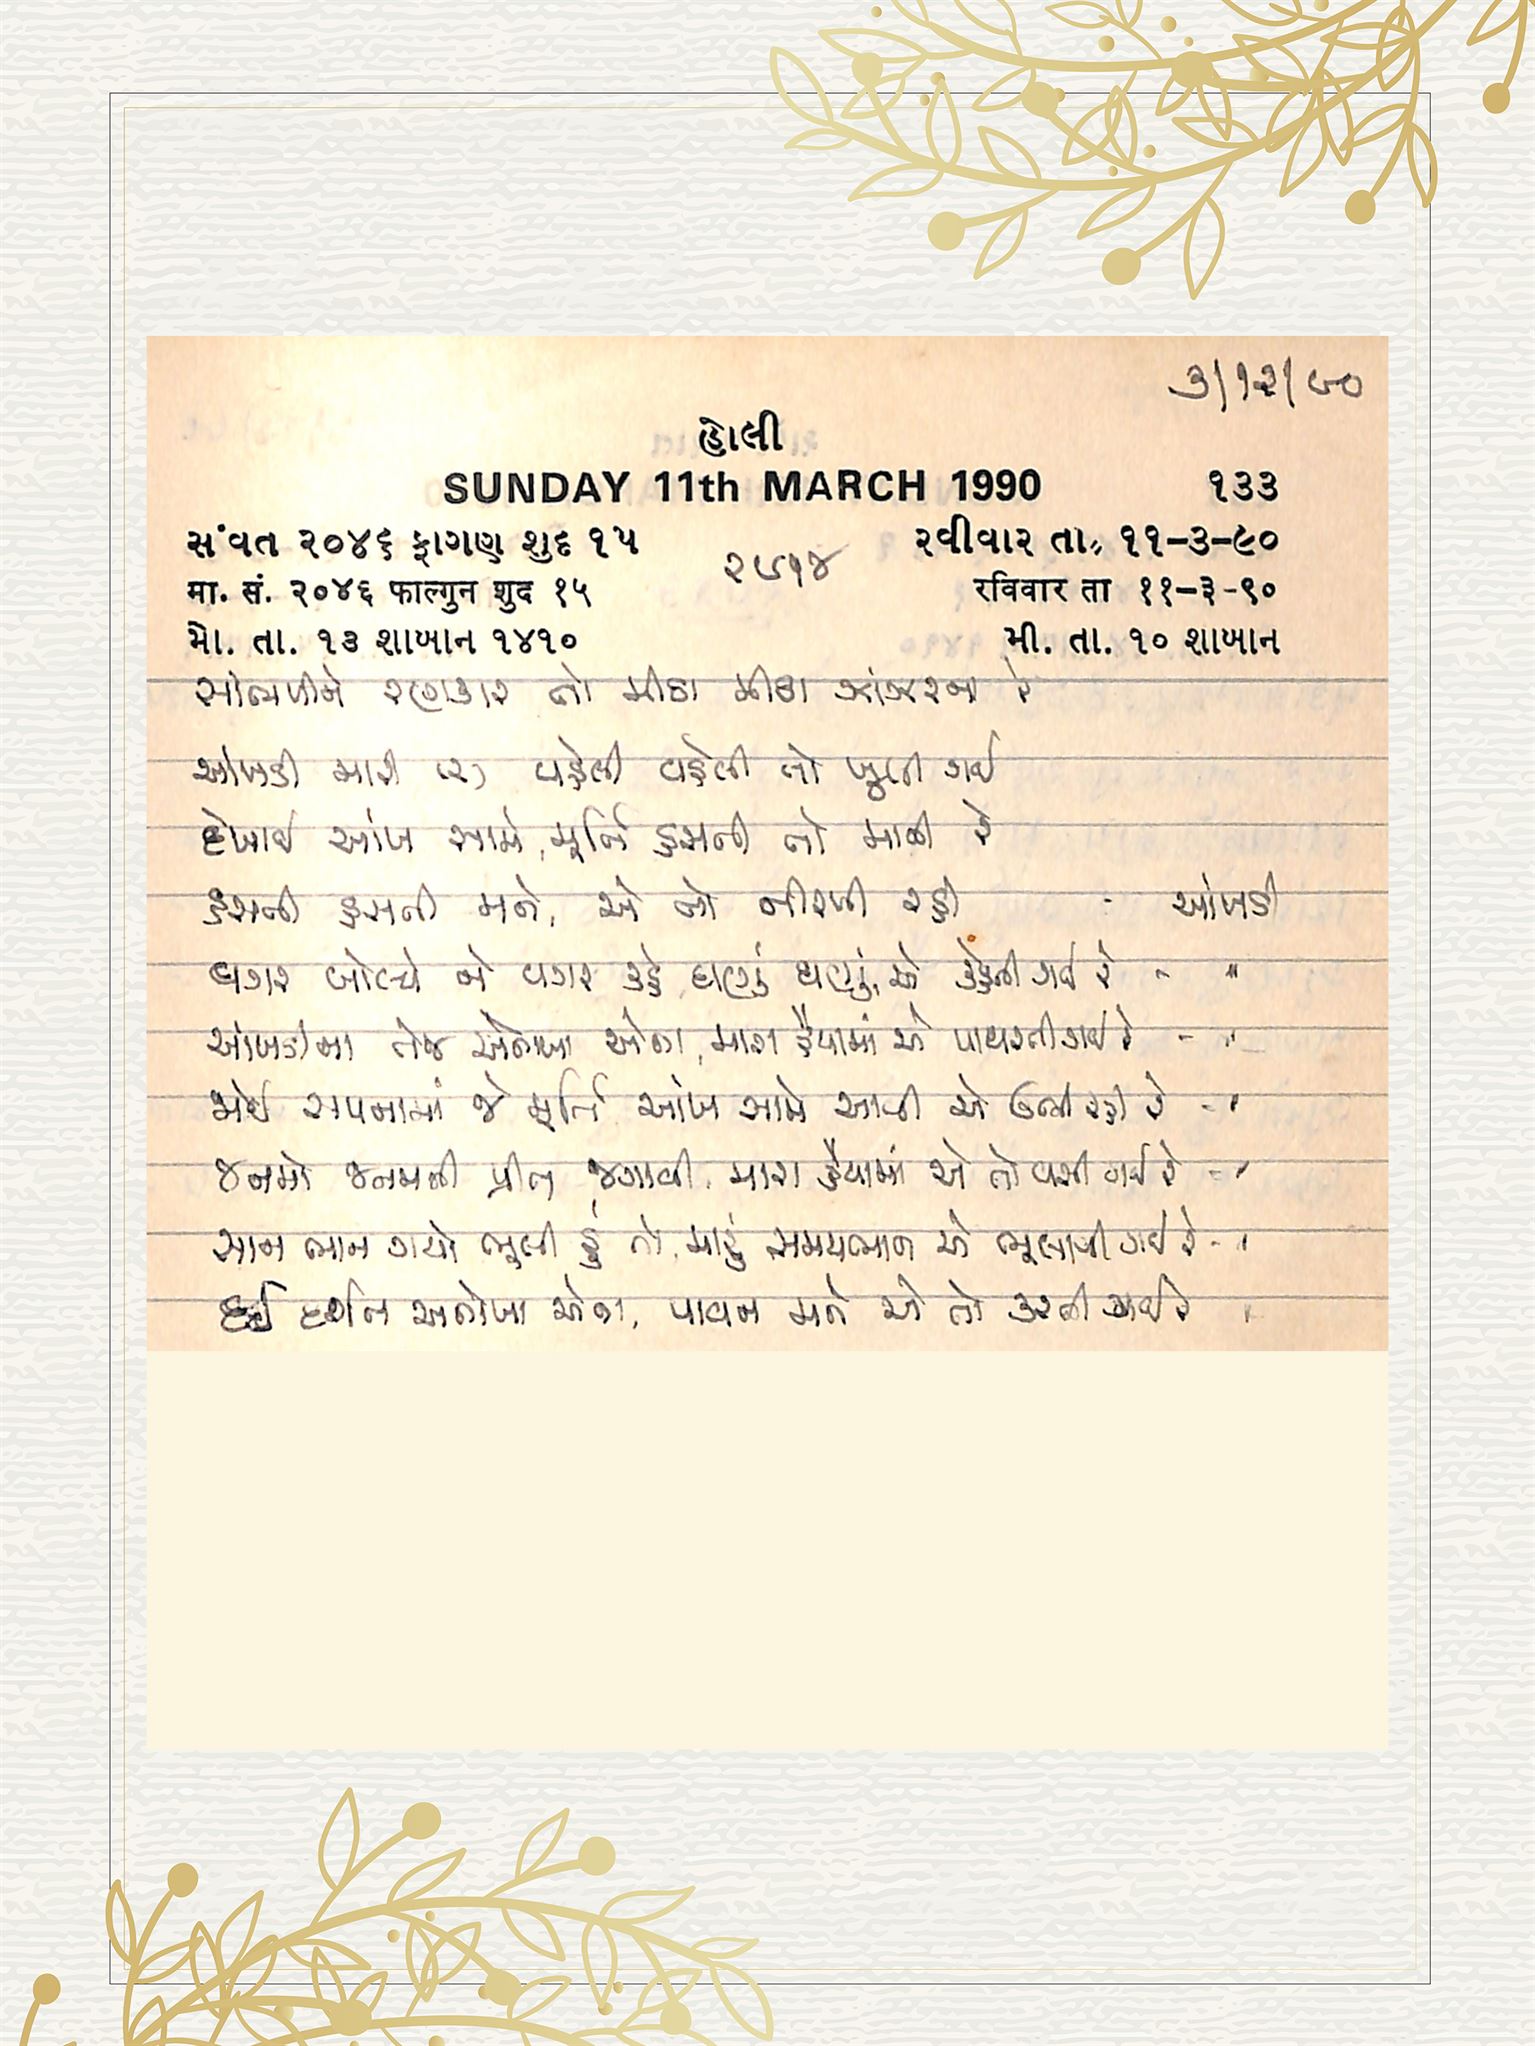 ૩/૧૨/૯૦
હોલી
SUNDAY 11th MARCH 1990 ૧૩૩
સંવત ૨૦૪૬ ફાગણ શુદ ૧૫ રવીવાર તા. ૧૧-૩-૯૦
૨૯૧૪
मा. सं. २०४६ फाल्गुन शुद १५ रविवार ता ११-३-९०
મો. તા. ૧૩ શાબાન ૧૪૧૦ મી. તા. ૧૦ શાબાન
સાંભળીને રણકાર તો મીઠા મીઠા ઝાંઝરના રે
આંખડી મારી (૨) વહેલી વહેલી તો ખુલી ગઈ
દેખાઈ આંખ સામે, મૂર્તિ હસતી તો માળી રે
હસતી હસતી મને, એ તો નીરખી રહી - આંખડી
વગર બોલ્યે ને વગર કહે ઘણું ઘણું, એ કહેતી ગઈ રે - "
આંખડીના તેજ અનોખા એના, મારા હૈયામાં એ પાથરતી ગઈ રે - "
જોઈ સપનામાં જે મૂર્તિ આંખ સામે આવી એ ઉભી રહી રે - "
જનમો જનમની પ્રીત જગાવી, મારા હૈયામાં એ તો વસી ગઈ રે - "
સાન ભાન ગયો ભૂલી હું તો, મારું સમયભાન એ ભૂલાવી ગઈ રે - "
દઈ દર્શન અનોખા એના, પાવન મને એ તો કરતી ગઈ રે "